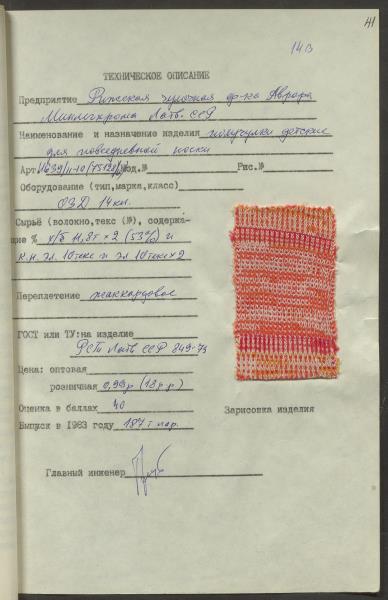 41
14 В
ТЕХНИЧЕСКОЕ ОПИСАНИЕ
Предприятие Рижская чулочная ф-ка Аврора
Минлегпрома Латв. ССР
Наименование и назначение изделия получулки детские
для повседневной носки
Арт. Мод.№ Рис.№
Оборудование (тип, марка, класс)
ОЗД 14 кл.
Сырьё (волокно, текс (№), содержа-
щие % х/б 11,8т × 2 (53%) и
к.н. эл. 10текс и эл 10текс×2
Переплетение жаккардовое
ГОСТ или ТУ: на изделие
РСТ Латв ССР 249-73
Цена: оптовая
розничная 0,99р (18 р.р)
Оценка в баллах 40
Зарисовка изделия
Выпуск в 1983 году 187 т. пар.
Главный инженер